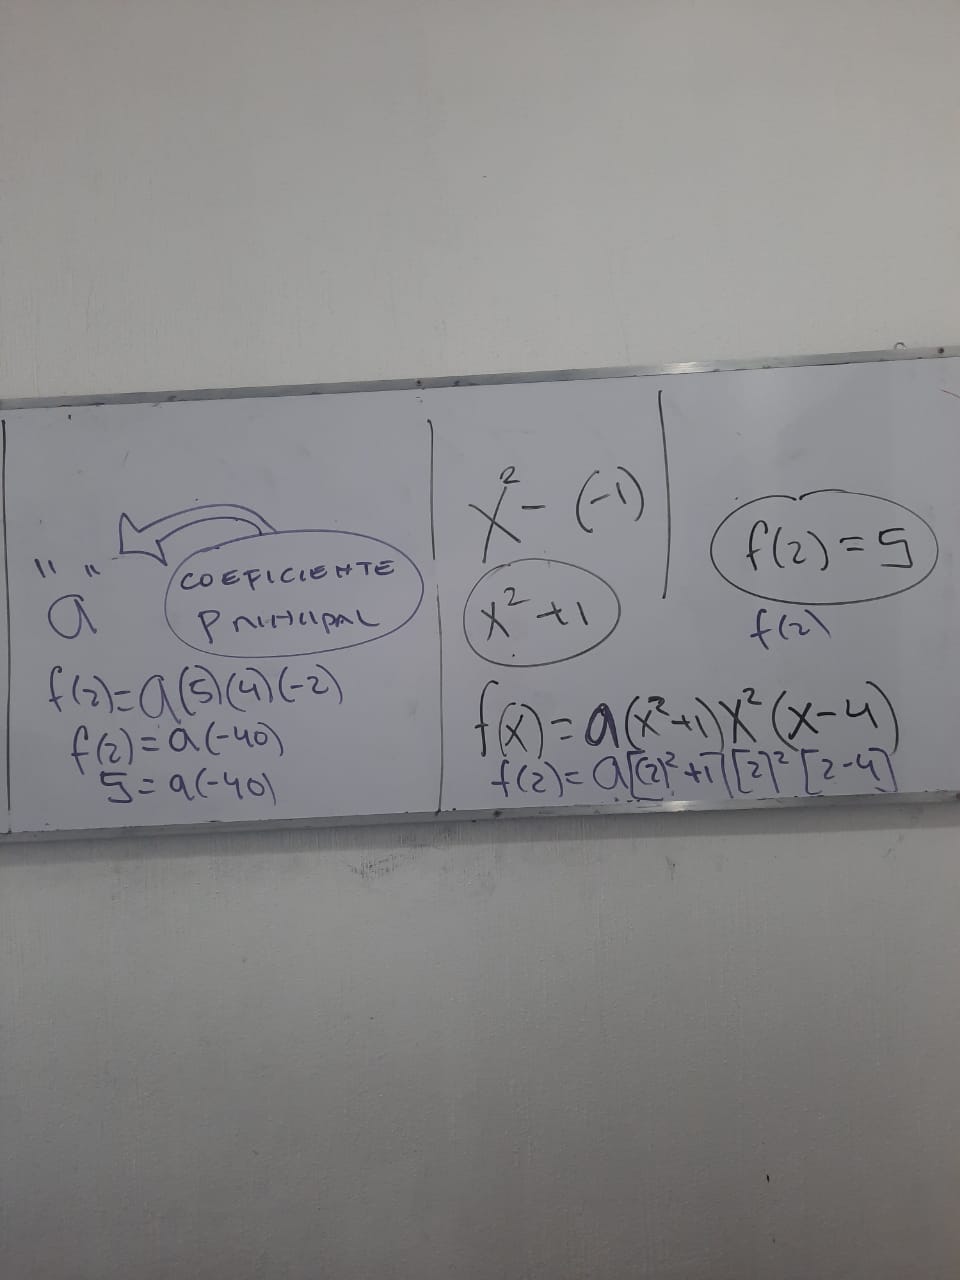 " "
a
COEFICIENTE
PRINCIPAL
f(2)=a(5)(4)(-2)
f(2)=a(-40)
5=a(-40)
x²-(-1)
x²+1
f(x)=a(x²+1)x²(x-4)
f(2)=a[(2)²+1][2]²[2-4]
f(2)=5
f(2)